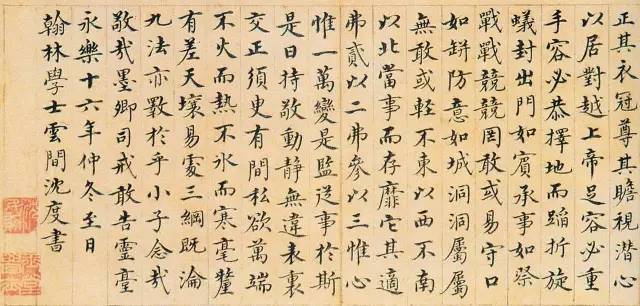 正其衣冠尊其瞻視潛心
以居對越上帝足容必重
手容必恭擇地而蹈折旋
蟻封出門如賓承事如祭
戰戰兢兢罔敢或易守口
如缾防意如城洞洞屬屬
無敢或輕不東以西不南
以北當事而存靡它其適
弗貳以二弗參以三惟心
惟一萬變是監從事於斯
是曰持敬動静無違表裏
交正須臾有間私欲萬端
不火而熱不冰而寒毫釐
有差天壤易處三綱既淪
九法亦斁於乎小子念哉
敬哉墨卿司戒敢告靈臺
永樂十六年仲冬至日
翰林學士雲間沈度書